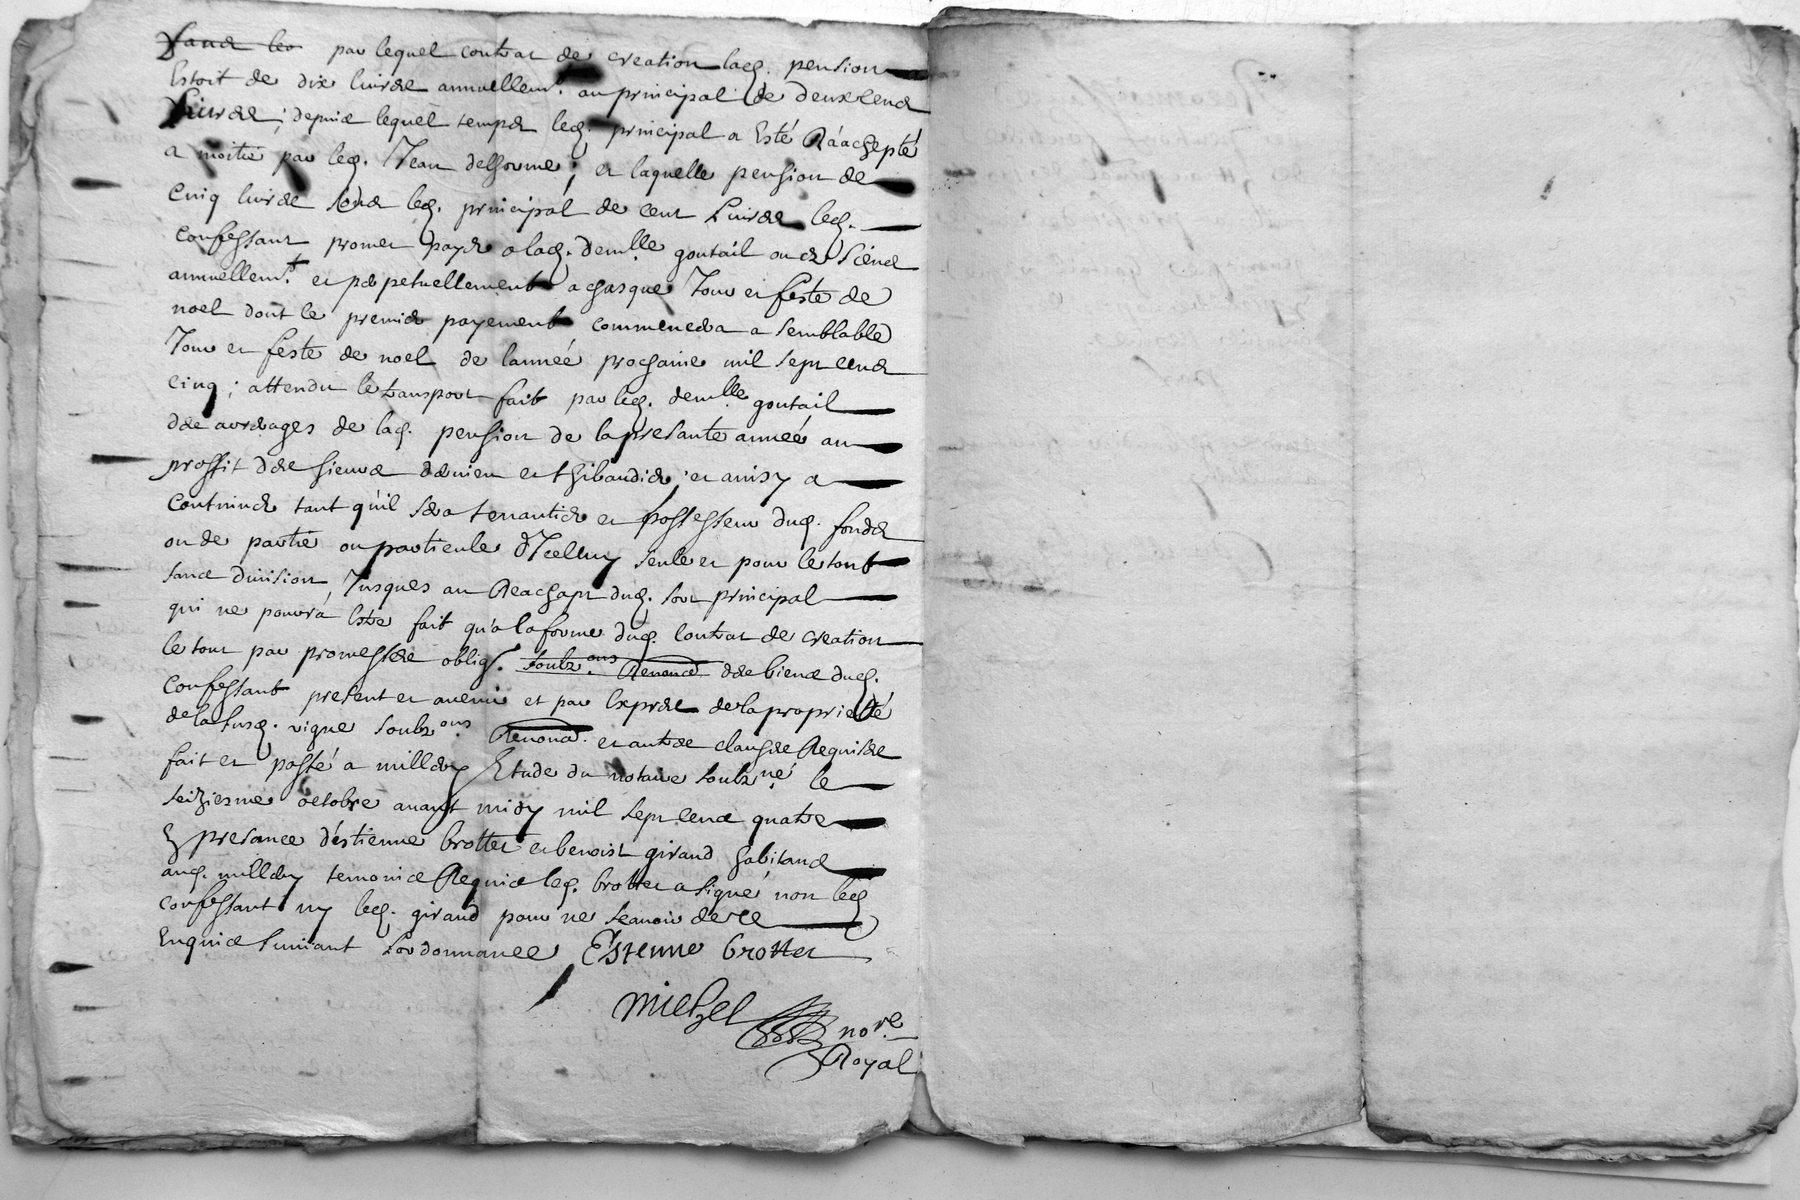 par lequel contrat de creation lad. pension
Estoit de dix livres annuellemt. au principal de deux cens
Livres ; depuis lequel temps led. principal a Esté Raachepté
a moitié par led. Jean delhorme ; et laquelle pension de
Cinq livres soubs led. principal de cent Livres led.
Confessant promet payer a lad. demlle goutail ou es siens
annuellemt. et perpetuellement a chasque Jour et feste de
noel dont le premier payement commencera a semblable
Jour et feste de noel de lanneé prochaine mil sept cens
cinq ; attendu le transport fait par lad. demlle goutail
des arrerages de lad. pension de la presante anneé au
proffit des sieurs et thibaudier ; et ainsy a
Continuer tant qu'il sera tenantier et possesseur dud. fonds
ou de partie ou particule d'Icelluy seule et pour le tout
sans division Jusques au Reachapt dud. sort principal
qui ne pourra Estre fait qu'a la forme dud. Contrat de creation
le tout par promesses oblig. soubz.ons Renonces des biens dud.
Confessant present et avenir et par Expres de la proprietté
de la susd. vigne soubz.ons Renonc. et autres clauses Requises
fait et passé a millery Etude du notaire soubz.né le
seiziesme octobre avant midy mil sept cens quatre
En presance d'estienne brottet et benoist giraud habitans
aud. millery temoins Requis led. brottet a signé non led
confessant ny led. giraud pour ne scavoir de ce
Enquis suivant Lordonnance Estienne brottet
michel nore
Royal